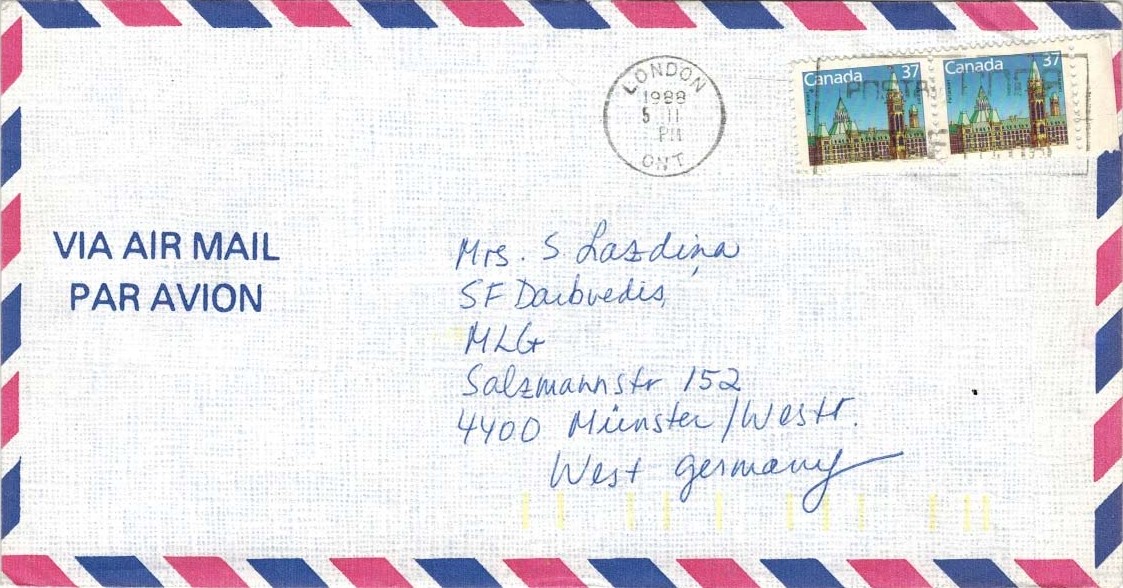 LONDON
1988
5 II
PM
ONT
Canada 37
Canada 37
POSTAL
VIA AIR MAIL
PAR AVION
Mrs. S. Lazdiņa
SF Darbvedis,
MLG
Salzmannstr 152
4400 Münster/Westf.
West Germany